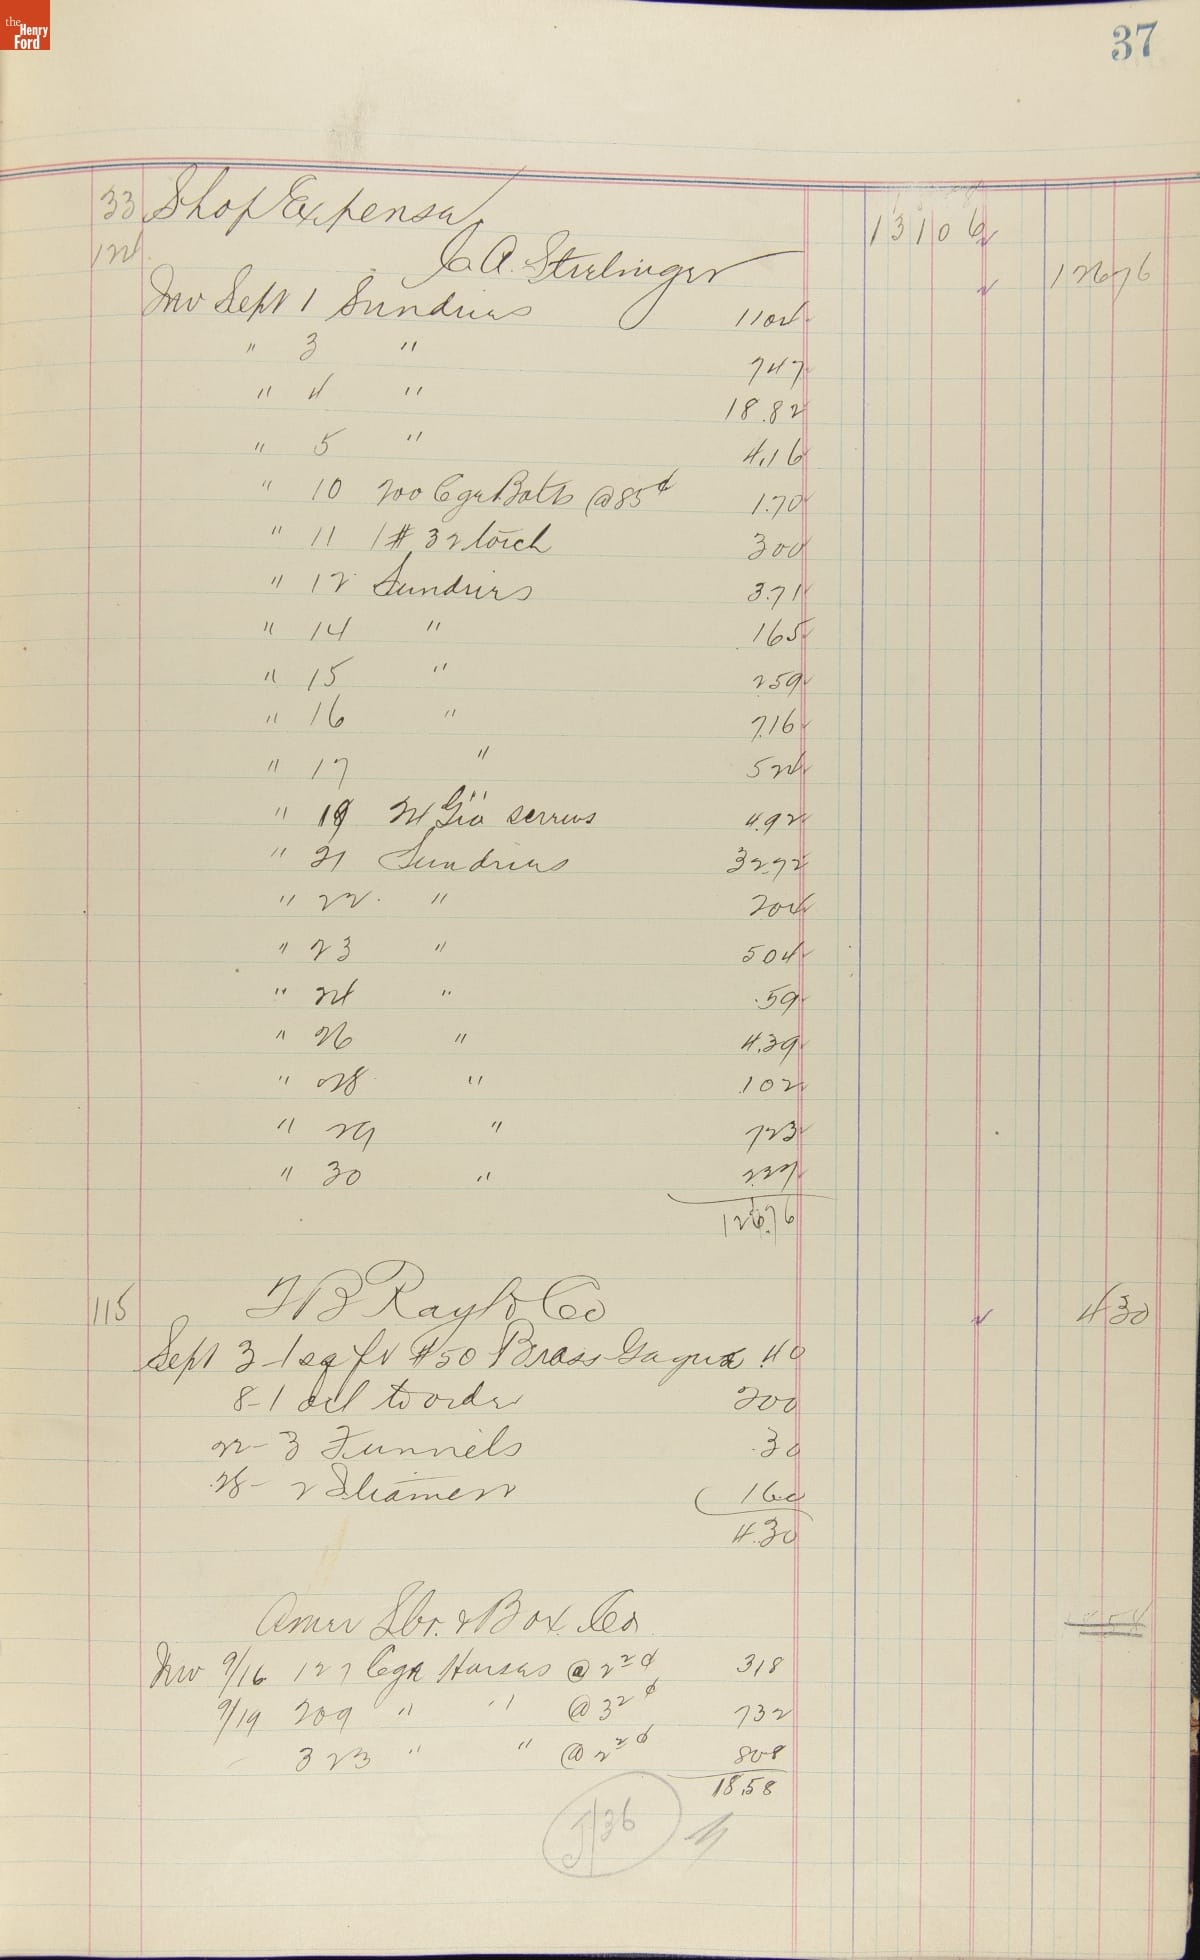 the Henry Ford
37
33 Shop Expense 131 06
124 C. A. Strelinger 126 76
Inv Sept 1 Sundries 1104
" 3 " 747
" 4 " 18.82
" 5 " 4.16
" 10 200 Cge Bolts @ 85¢ 1.70
" 11 1 # 32 torch 300
" 12 Sundries 3.71
" 14 " 165
" 15 " 259
" 16 " 7.16
" 17 " 524
" 19 24 Gro screws 4.92
" 21 Sundries 32.72
" 22 " 204
" 23 " 504
" 24 " .59
" 26 " 4.39
" 28 " 102
" 29 " 723
" 30 " 2.27
126.76
115 T B Rayl & Co 4 30
Sept 3 - 1 sq ft #50 Brass Gague .40
8 - 1 to order 200
22 - 3 Funnels .30
28 - 2 160
4.30
Amer Lbr. & Box. Co. 18 58
Inv 9/16 127 Cge Horses @ 2 2 ¢ 318
9/19 209 " " @ 3 2 ¢ 732
323 " " @ 2 2 ¢ 808
18.58
J/36